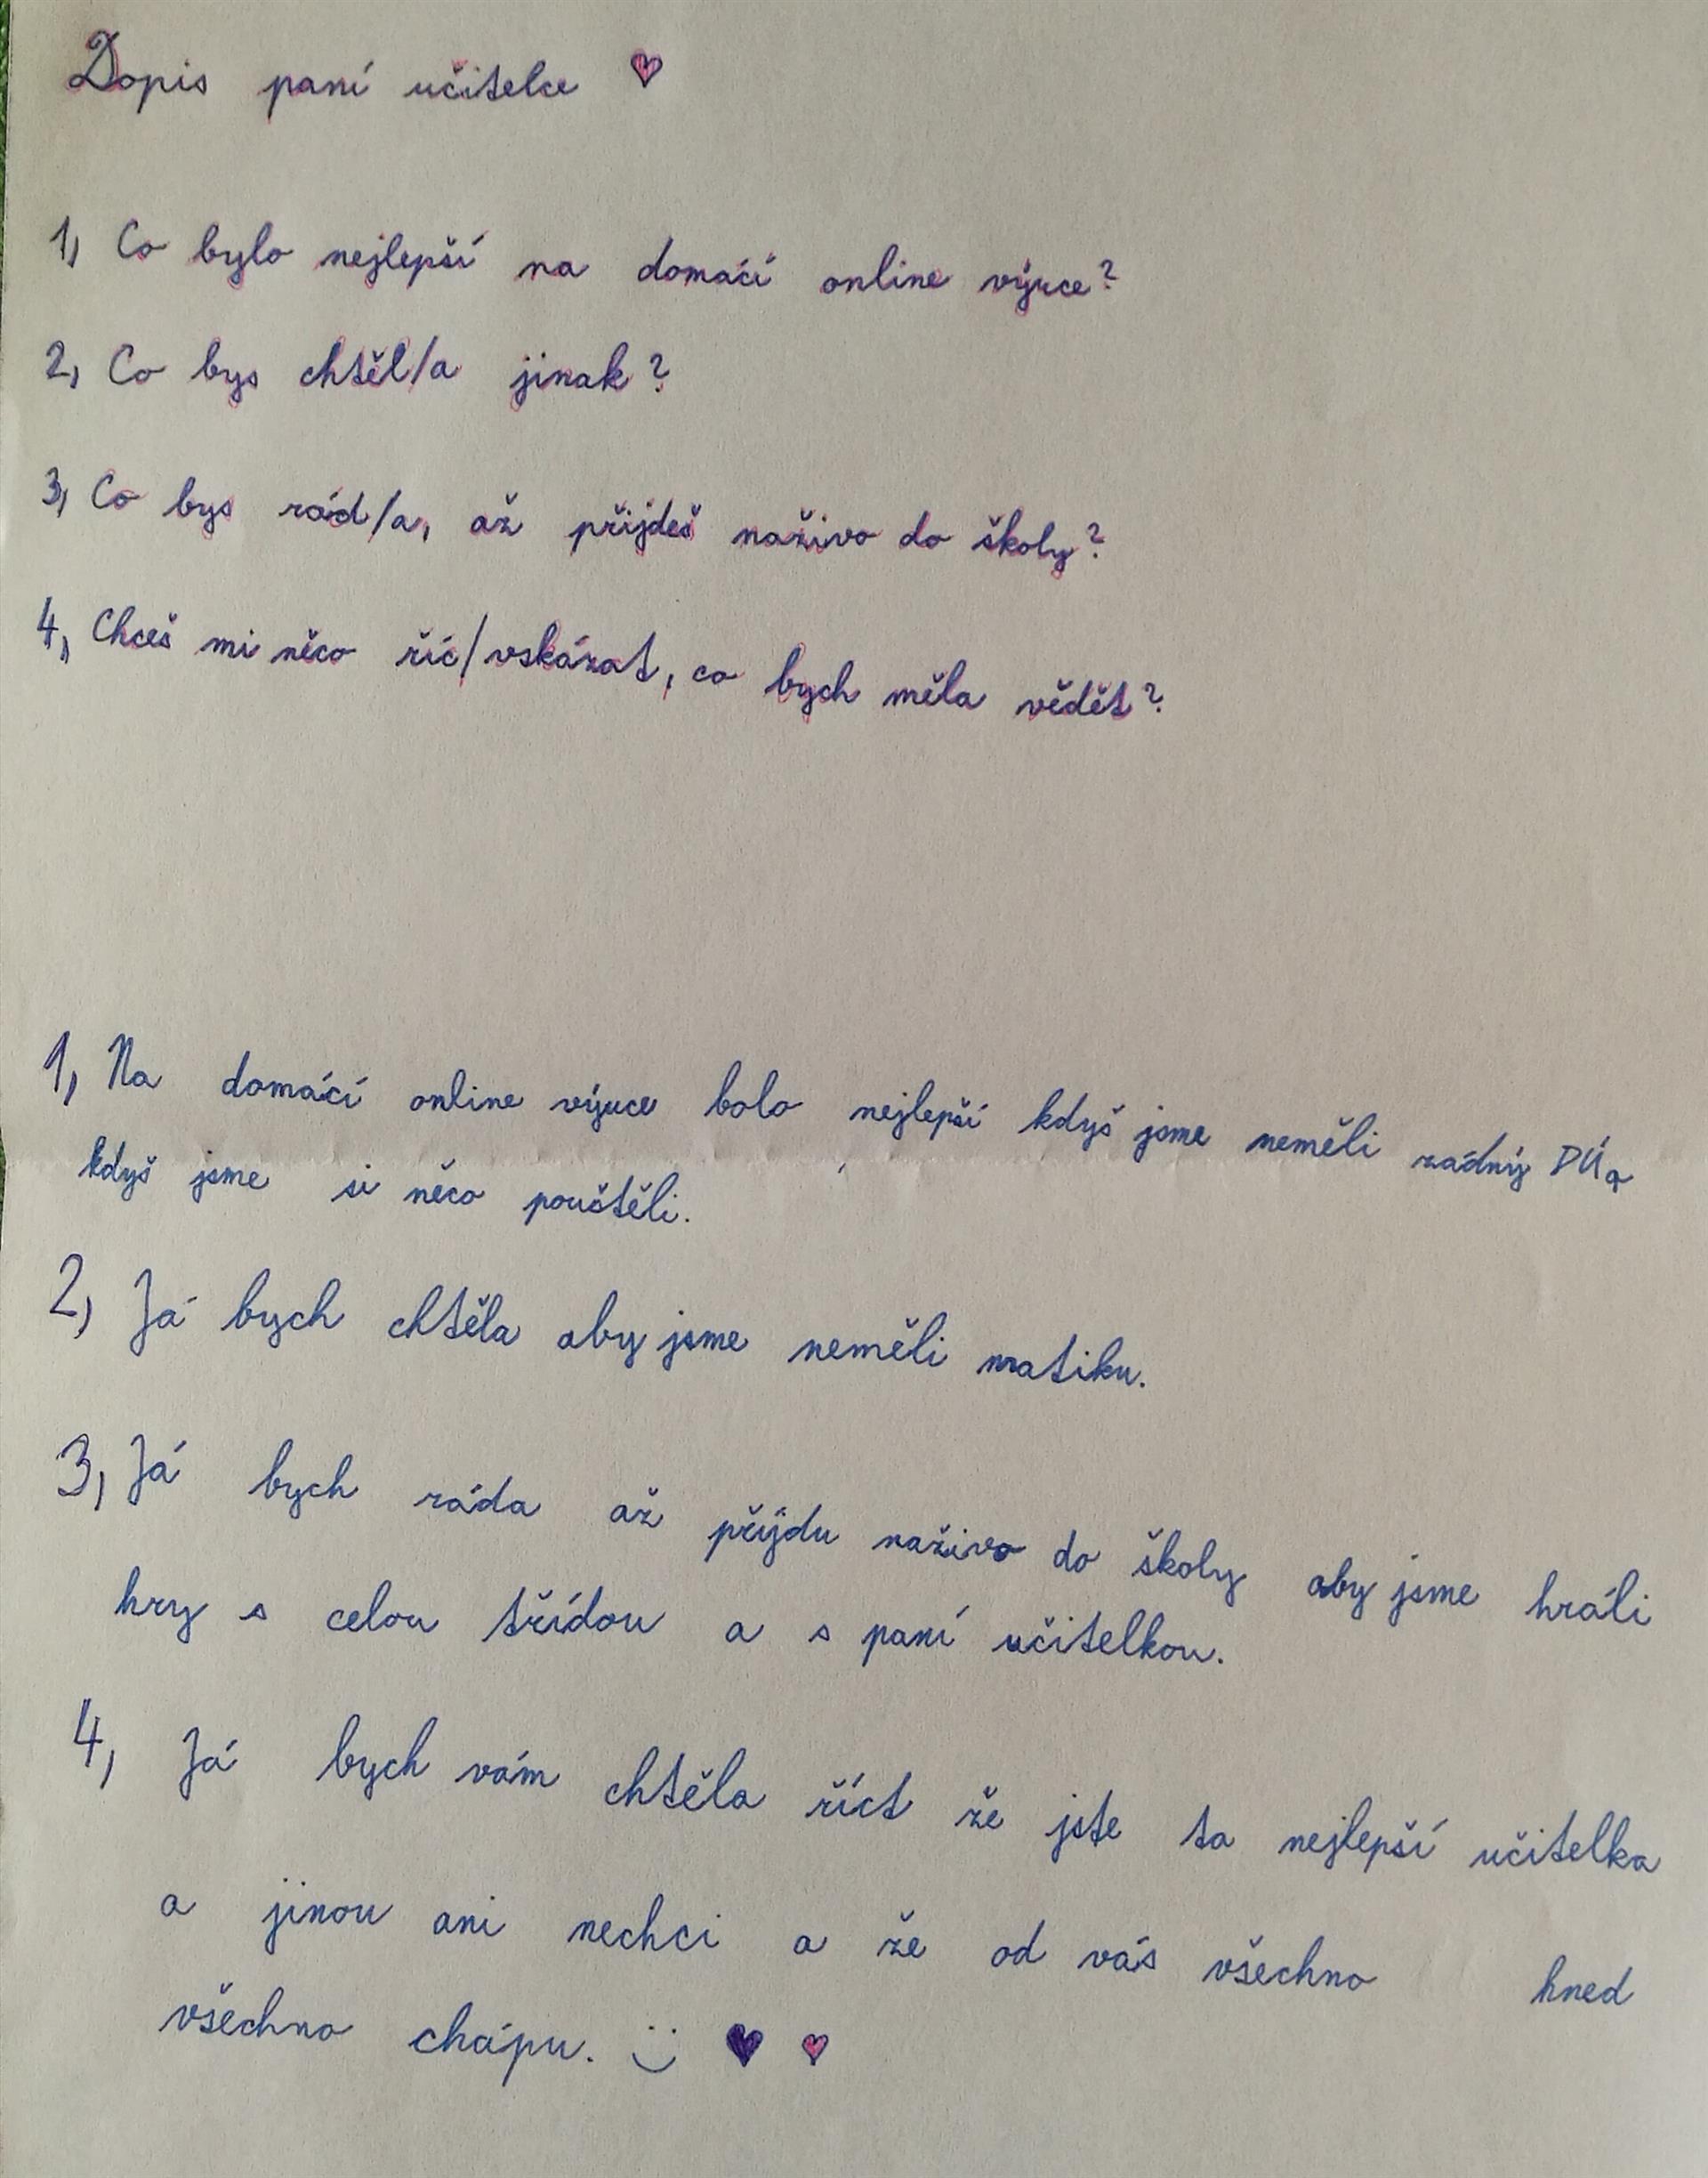 Dopis paní učitelce ♥
1, Co bylo nejlepší na domácí online výuce?
2, Co bys chtěl/a jinak?
3, Co bys rád/a, až přijdeš naživo do školy?
4, Chceš mi něco říc/vskázat, co bych měla vědět?
1, Na domácí online výuce bolo nejlepší kdyš jsme neměli zádný DÚ a
kdyš jsme si něco pouštěli.
2, Já bych chtěla aby jsme neměli matiku.
3, Já bych ráda až příjdu naživo do školy aby jsme hráli
hry s celou třídou a s paní učitelkou.
4, Já bych vám chtěla říct že jste ta nejlepší učitelka
a jinou ani nechci a že od vás všechno hned
všechno chápu. :) ♥ ♥